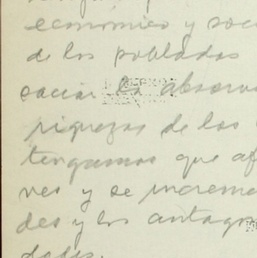 económico y soci
de los poblados
la absorv
riquezas de las
tengamos que af
ves y se increme
des y los antago
dades.